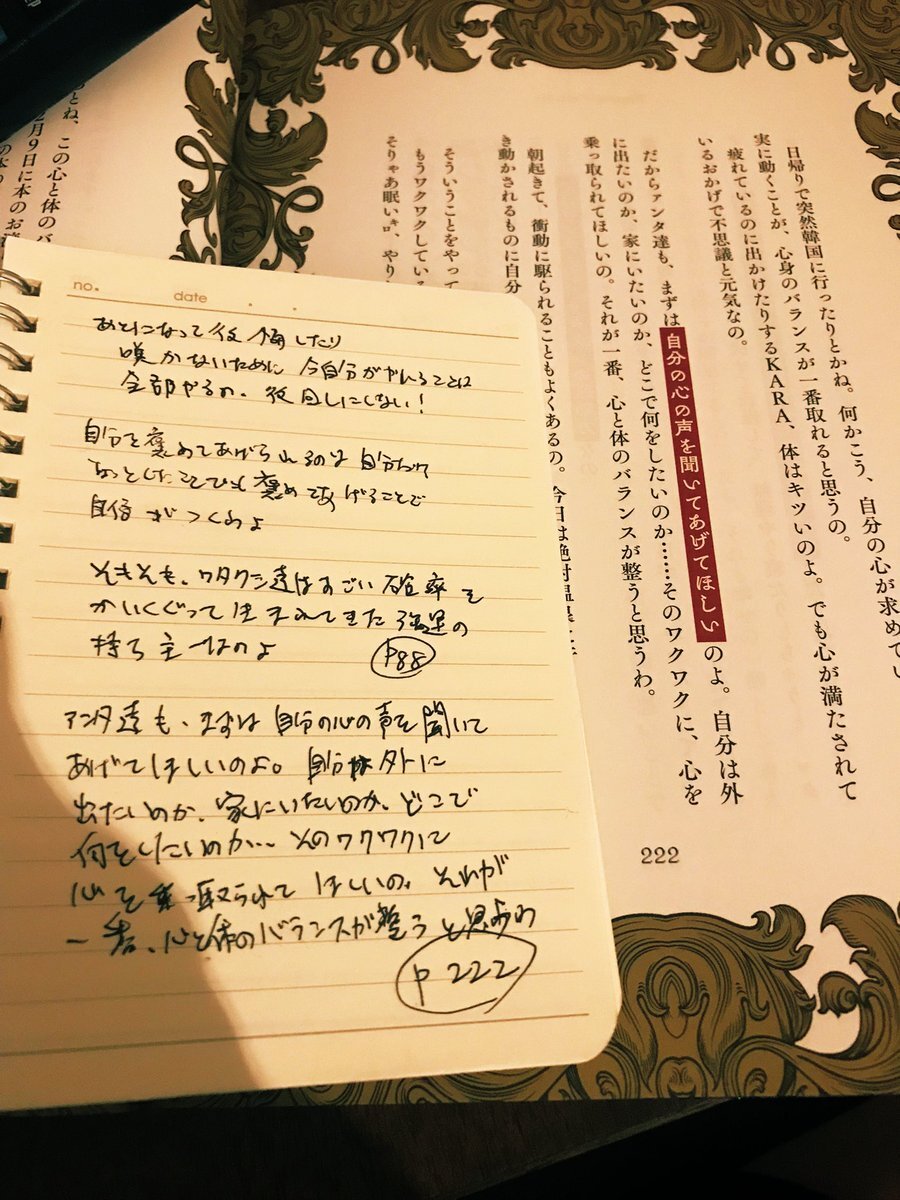 日帰りで突然韓国に行ったりとかね。何かこう、自分の心が求めてい
実に動くことが、心身のバランスが一番取れると思うの。
疲れているのに出かけたりするKARA、体はキツいのよ。でも心が満たされて
いるおかげで不思議と元気なの。
だからァンタ達も、まずは自分の心の声を聞いてあげてほしいのよ。自分は外
に出たいのか、家にいたいのか、どこで何をしたいのか……そのワクワクに、心を
乗っ取られてほしいの。それが一番、心と体のバランスが整うと思うわ。
朝起きて、衝動に駆られることもよくあるの。今日は絶対温泉
き動かされるものに自分
そういうことをやって
もうワクワクしている
そりゃあ眠い㌔、やり
222
とね、この心と体のバ
2月9日に本のお
の本の
no.
date
あとになって後悔したり
嘆かないために今自分がやれることは
全部やるの。後回しにしない!
自分を褒めてあげられるのは自分だけ
ちょっとしたことでも褒めてあげることで
自信がつくわよ
そもそも、ワタクシ達はすごい確率を
かいくぐって生まれてきた強運の
持ち主なのよ
P88
アンタ達も、まずは自分の心の声を聞いて
あげてほしいのよ。自分は外に
出たいのか、家にいたいのか、どこで
何をしたいのか… そのワクワクに
心を乗っ取られてほしいの。それが
一番、心と体のバランスが整うと思うわ
p 222